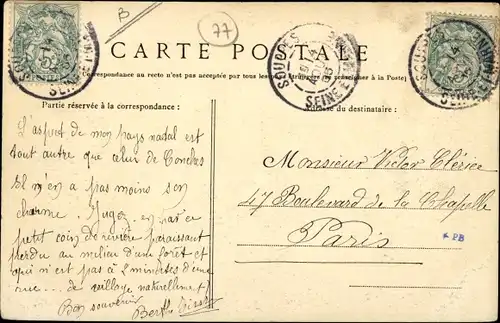 B
77
CARTE POSTALE
SOUPPES
SEINE ET MARNE
Correspondance au recto n'est pas acceptée par tous les
à la Poste)
Partie réservée à la correspondance :
Adresse du destinataire :
L'aspect de mon pays natal est
tout autre que celui de Conches
Il n'en a pas moins son
charme. Jugez en par ce
petit coin de rivière paraissant
perdu au milieu d'une forêt et
qui n'est pas à 2 minutes d'une
rue --- de village naturellement !
Bon souvenir
Berthe
Monsieur Victor Clérice
47 Boulevard de la Chapelle
Paris
PB